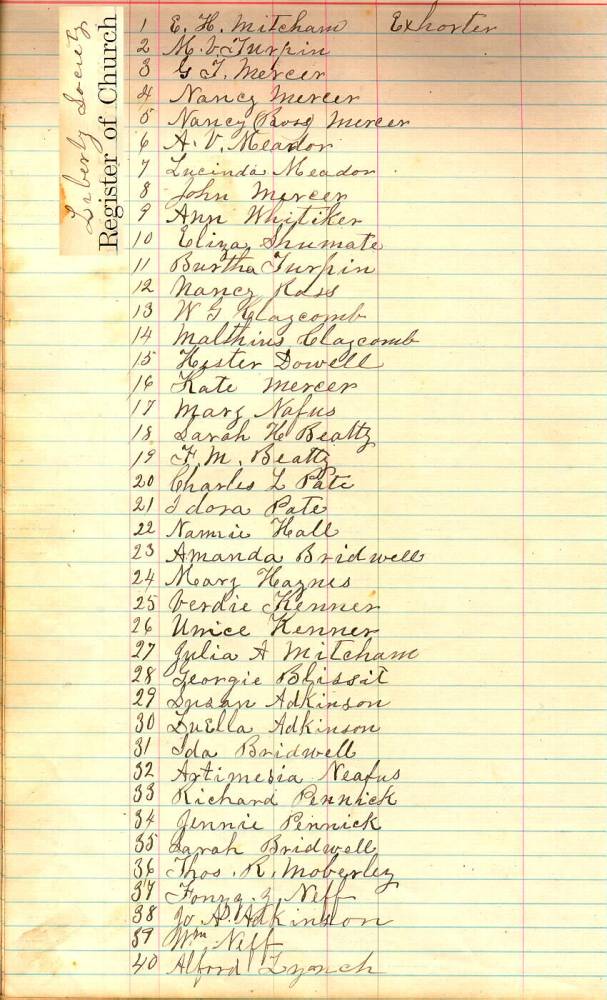 Liberty Society
Register of Church
1 E. H. Mitcham Exhorter
2 M. V. Turpin
3 G T. Mercer
4 Nancy Mercer
5 Nancy (Ross) Mercer
6 A. V. Meador
7 Lucinda Meador
8 John Mercer
9 Ann Whitiker
10 Eliza Shumate
11 Burtha Turpin
12 Nancy Ross
13 W G Claycomb
14 Malthius Claycomb
15 Hester Dowell
16 Kate Mercer
17 Mary Nafus
18 Sarah H Beatty
19 F. M. Beatty
20 Charles L Pate
21 Idora Pate
22 Nannie Hall
23 Amanda Bridwell
24 Mary Haynes
25 Verdie Kenner
26 Unice Kenner
27 Julia A Mitcham
28 Georgie Blissit
29 Susan Adkinson
30 LuElla Adkinson
31 Ida Bridwell
32 Artimesia Neafus
33 Richard Pennick
34 Jennie Pennick
35 Sarah Bridwell
36 Thos. R. Moberley
37 Neff
38 Jo A. Adkinson
39 Wm Neff
40 Alford Lynch